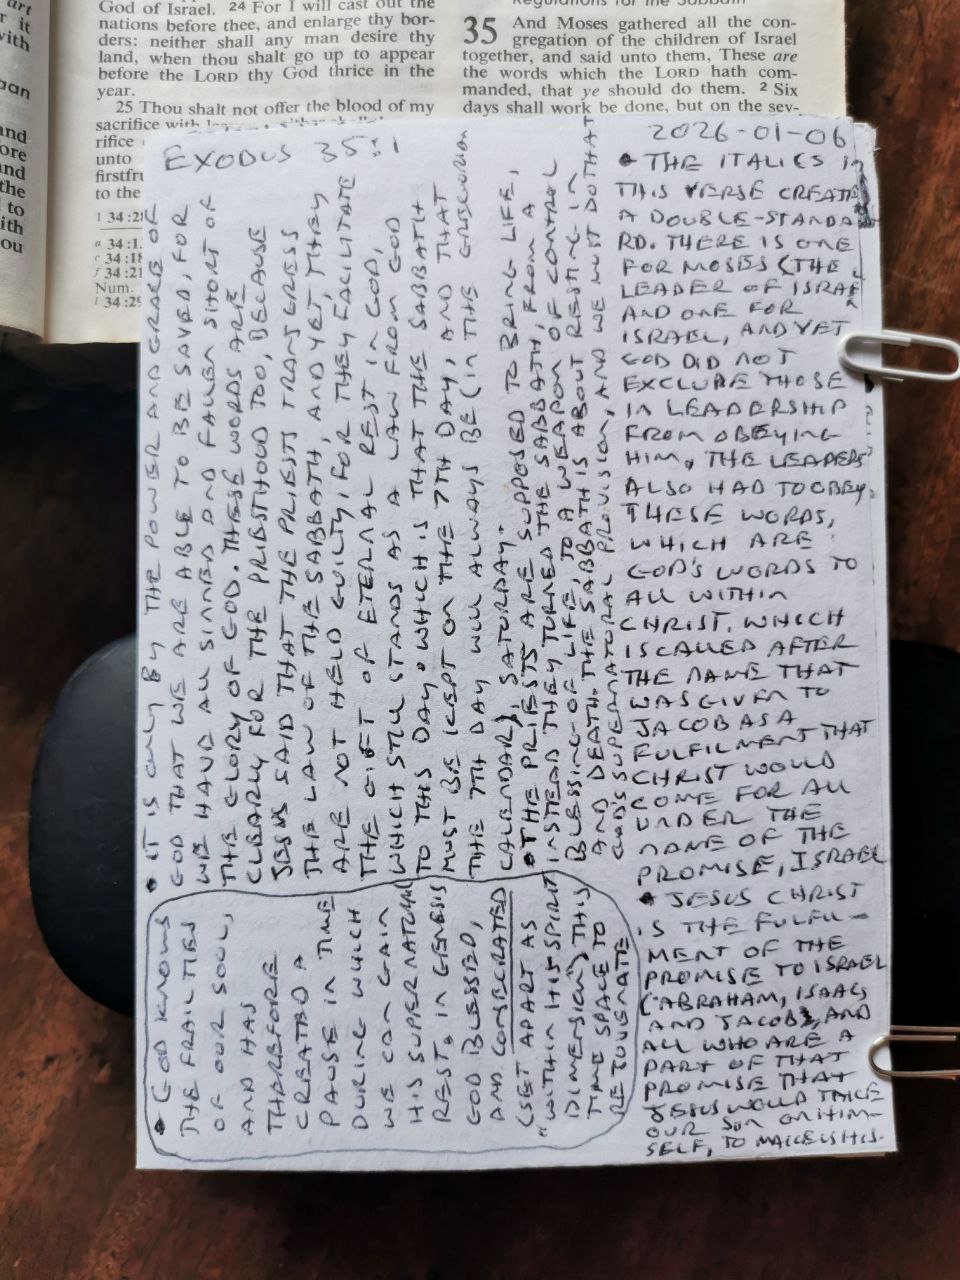 God of Israel. 24 For I will cast out the
nations before thee, and enlarge thy bor-
ders: neither shall any man desire thy
land, when thou shalt go up to appear
before the LORD thy God thrice in the
year.
25 Thou shalt not offer the blood of my
sacrifice with
rifice
unto
firstfru
to the
a 34:1
Num.
35 And Moses gathered all the con-
gregation of the children of Israel
together, and said unto them, These are
the words which the LORD hath com-
manded, that ye should do them. 2 Six
days shall work be done, but on the sev-
art
r it
with
and
ore
and
the
to
ith
ou
EXODUS 35:1
2026-01-06
• THE ITALICS in
THIS VERSE CREATE
A DOUBLE-STANDA
RD. THERE IS ONE
FOR MOSES (THE
LEADER OF ISRAE
AND ONE FOR
ISRAEL, AND YET
GOD DID NOT
EXCLUDE THOSE
IN LEADERSHIP
FROM OBEYING
HIM. THE LEADERS
ALSO HAD TO OBEY
THESE WORDS,
WHICH ARE
GOD'S WORDS TO
ALL WITHIN
CHRIST, WHICH
IS CALLED AFTER
THE NAME THAT
WAS GIVEN TO
JACOB AS A
FULFILMENT THAT
CHRIST WOULD
COME FOR ALL
UNDER THE
NAME OF THE
PROMISE, ISRAEL
• JESUS CHRIST
IS THE FULFIL-
MENT OF THE
PROMISE TO ISRAEL
(ABRAHAM, ISAAC,
AND JACOB), AND
ALL WHO ARE A
PART OF THAT
PROMISE THAT
JESUS WOULD TAKE
OUR SIN ON HIM-
SELF, TO MAKE US HIS.
• IT IS ONLY BY THE POWER AND GRACE OF
GOD THAT WE ARE ABLE TO BE SAVED, FOR
WE HAVE ALL SINNED AND FALLEN SHORT OF
THE GLORY OF GOD. THESE WORDS ARE
CLEARLY FOR THE PRIESTHOOD TOO, BECAUSE
JESUS SAID THAT THE PRIESTS TRANSGRESS
THE LAW OF THE SABBATH, AND YET THEY
ARE NOT HELD GUILTY, FOR THEY FACILITATE
THE GIFT OF ETERNAL REST IN GOD,
WHICH STILL STANDS AS A LAW FROM GOD
TO THIS DAY, WHICH IS THAT THE SABBATH
MUST BE KEPT ON THE 7TH DAY, AND THAT
THE 7TH DAY WILL ALWAYS BE (IN THE GREGORIAN
CALENDAR), SATURDAY.
• THE PRIESTS ARE SUPPOSED TO BRING LIFE,
INSTEAD THEY TURNED THE SABBATH, FROM A
BLESSING OF LIFE, TO A WEAPON OF CONTROL
AND DEATH. THE SABBATH IS ABOUT RESTING IN
GOD'S SUPERNATURAL PROVISION, AND WE MUST DO THAT
• GOD KNOWS
THE FRAILTIES
OF OUR SOUL,
AND HAS
THEREFORE
CREATED A
PAUSE IN TIME
DURING WHICH
WE CAN GAIN
HIS SUPERNATURAL
REST. IN GENESIS
GOD BLESSED,
AND CONSECRATED
(SET APART AS
"WITHIN HIS SPIRIT
DIMENSION") THIS
TIME SPACE TO
REJUVENATE